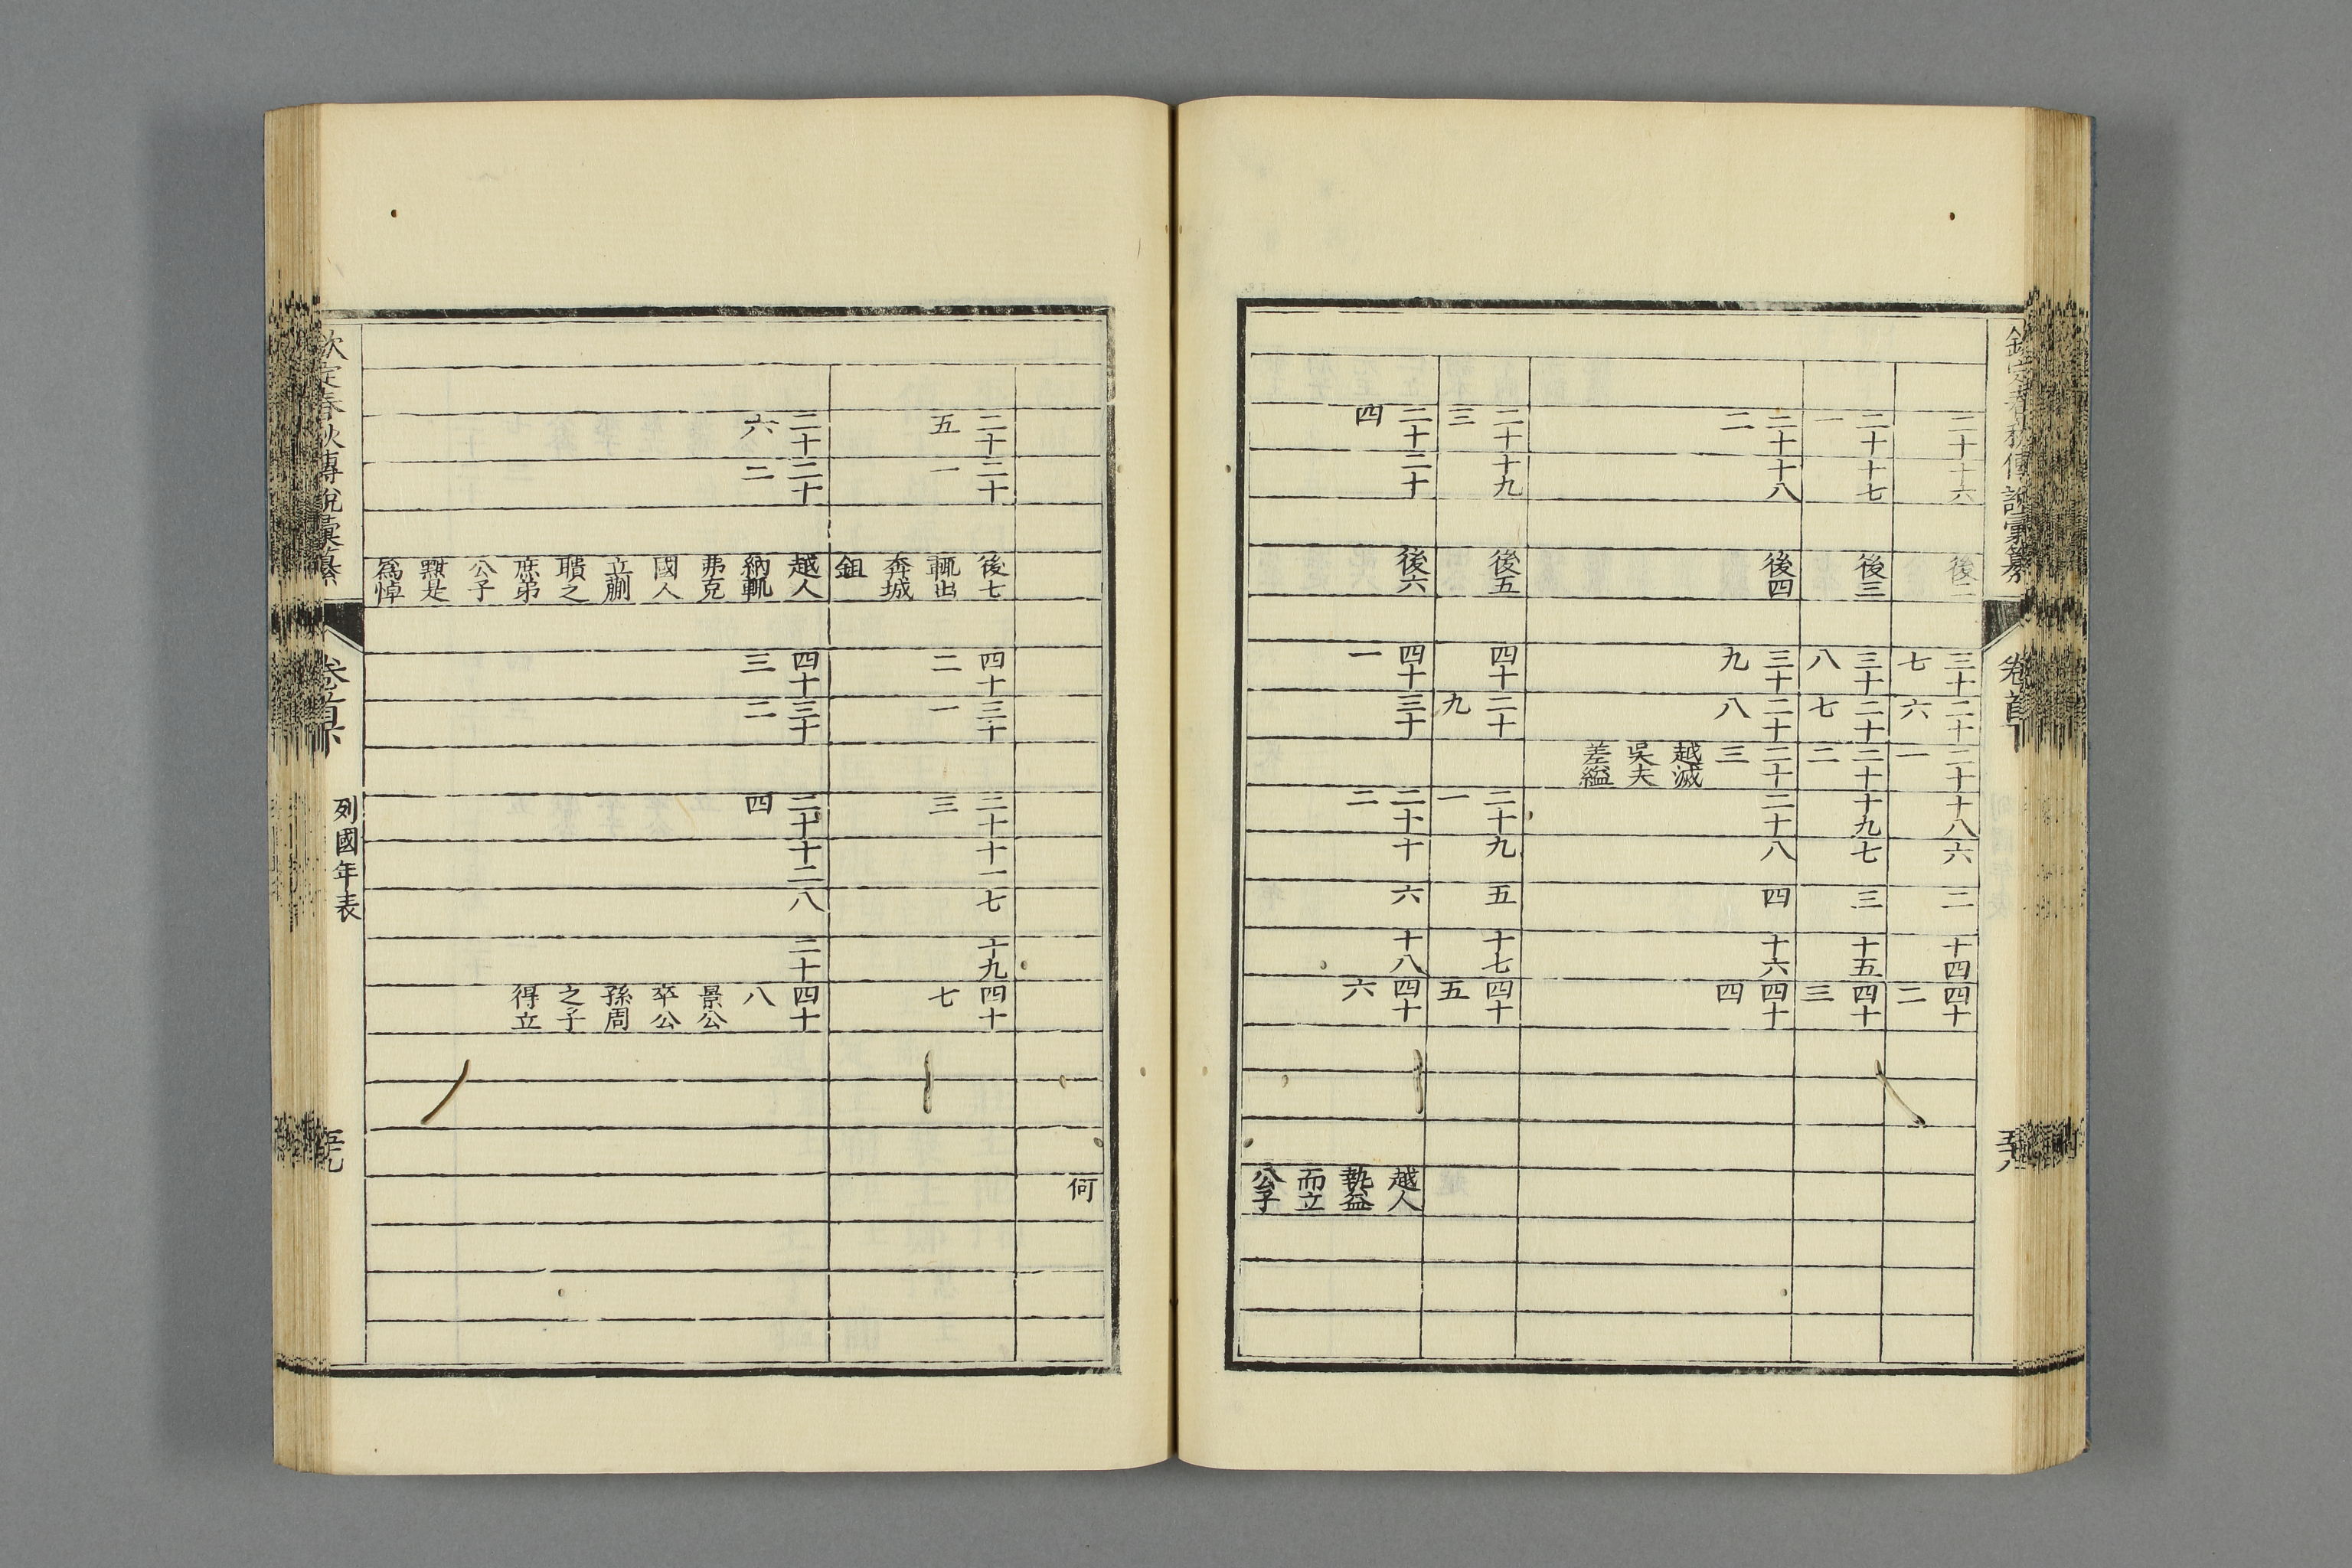 欽定春秋傳說彙纂 卷首下 五十八
二十 十六 後二 三十 二十 二十 十八 六 二 十四 四十
七 六 一 二
二十 十七 後三 三十 二十 二十 十九 七 三 十五 四十
一 八 七 二 三
二十 十八 後四 三十 二十 二十 二十 八 四 十六 四十
二 九 八 三 四
越滅
吳夫
差縊
二十 十九 後五 四十 二十 二十 九 五 十七 四十
三 九 一 五
二十 二十 後六 四十 三十 二十 十 六 十八 四十 越人
四 一 二 六 執益
而立
公子
何
二十 二十 後七 四十 三十 二十 十一 七 十九 四十
五 一 輒出 二 一 三 七
奔城
鉏
二十 二十 越人 四十 三十 二十 十二 八 二十 四十
六 二 納輒 三 二 四 八
弗克 景公
國人 卒公
立蒯 孫周
聵之 之子
庶弟 得立
公子
黚是
爲悼
欽定春秋傳說彙纂 卷首下 列國年表 五十九